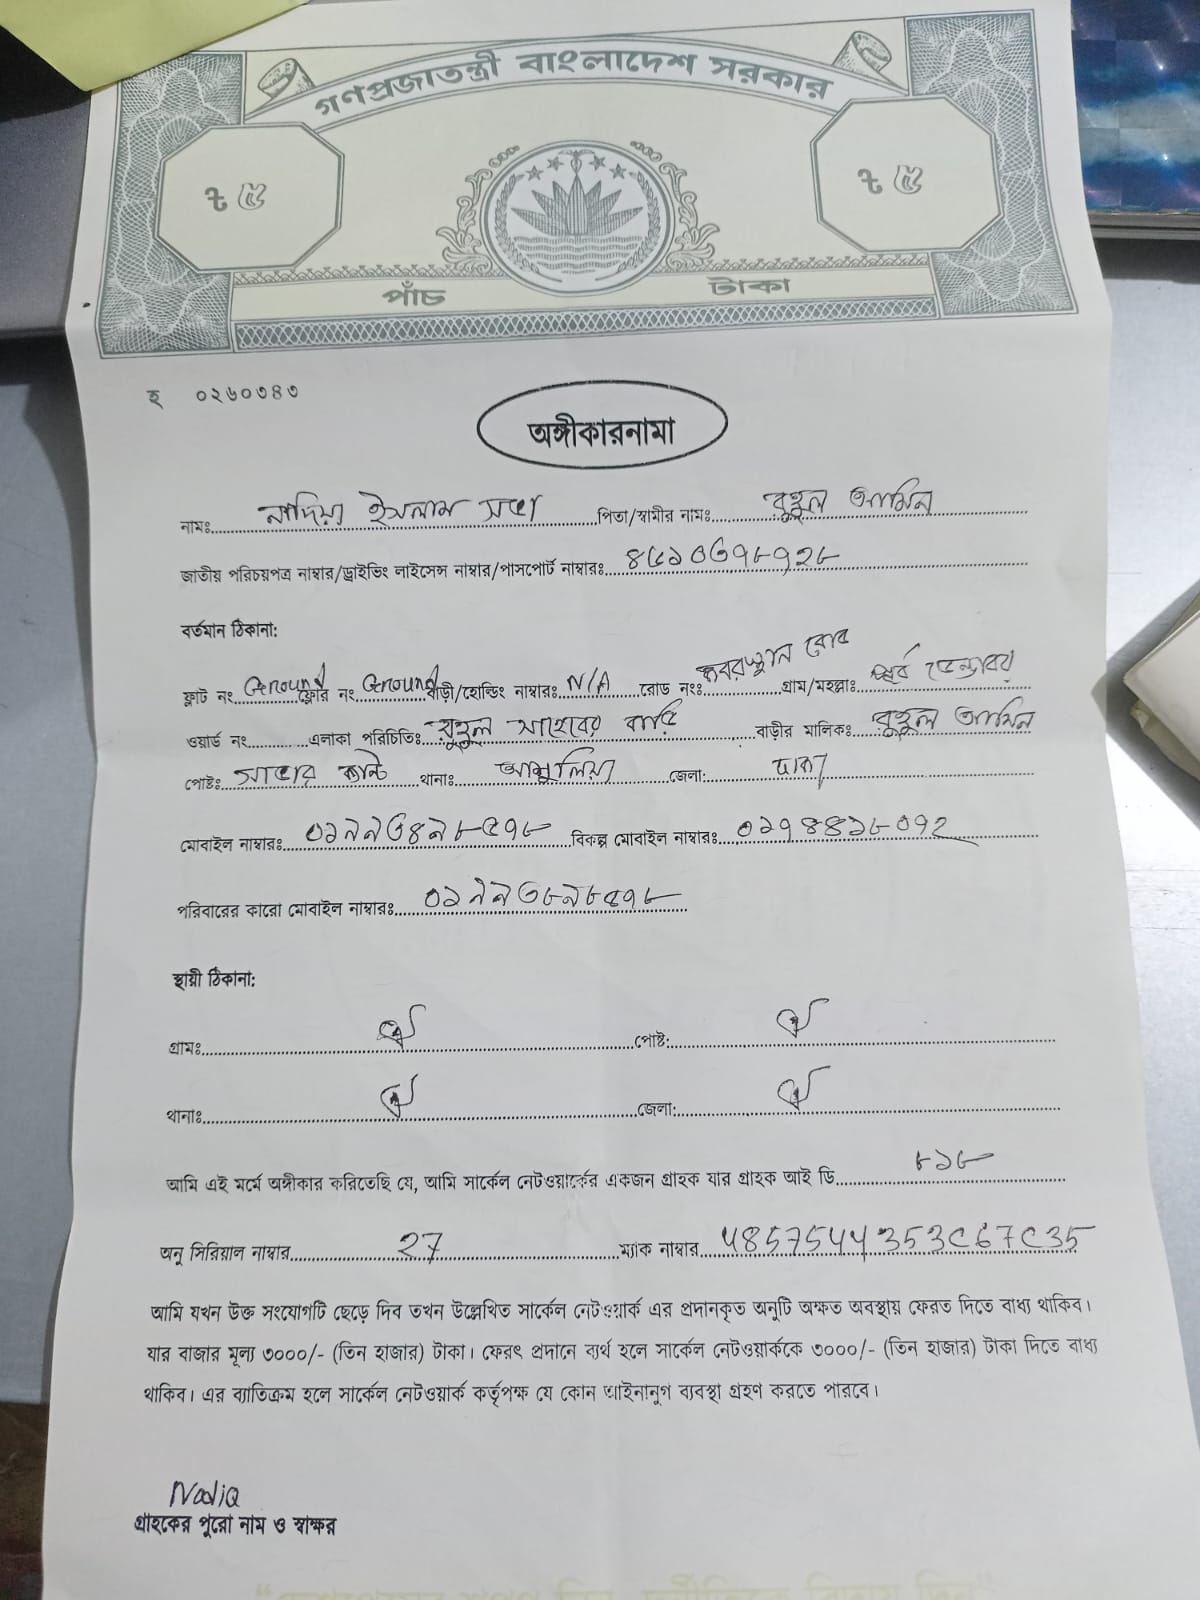 গণপ্রজাতন্ত্রী বাংলাদেশ সরকার
ট ৫ ট ৫
পাঁচ টাকা
হ ০২৬০৩৪৩
অঙ্গীকারনামা
নামঃ নাদিয়া ইসলাম পিতা/স্বামীর নামঃ রুহুল আমিন
জাতীয় পরিচয়পত্র নাম্বার/ড্রাইভিং লাইসেন্স নাম্বার/পাসপোর্ট নাম্বারঃ
বর্তমান ঠিকানা:
ফ্লাট নং Ground ফ্লোর নং Ground বাড়ী/হোল্ডিং নাম্বারঃ N/A রোড নংঃ কবরস্থান রোড গ্রাম/মহল্লাঃ পূর্ব
ওয়ার্ড নং এলাকা পরিচিতিঃ রুহুল সাহেবের বাড়ি বাড়ীর মালিকঃ রুহুল আমিন
পোষ্টঃ সাভার ক্যান্ট থানাঃ আশুলিয়া জেলা: ঢাকা
মোবাইল নাম্বারঃ ০১৯৯৩৪৯৮৫৭৮ বিকল্প মোবাইল নাম্বারঃ ০১৭৪৪১৮০৭২
পরিবারের কারো মোবাইল নাম্বারঃ ০১৯৯৩৮৯৮৫৭৮
স্থায়ী ঠিকানা:
গ্রামঃ পোষ্ট:
থানাঃ জেলা:
আমি এই মর্মে অঙ্গীকার করিতেছি যে, আমি সার্কেল নেটওয়ার্কের একজন গ্রাহক যার গ্রাহক আই ডি ৮১৮
অনু সিরিয়াল নাম্বার 27 ম্যাক নাম্বার 48575444353C67C35
আমি যখন উক্ত সংযোগটি ছেড়ে দিব তখন উল্লেখিত সার্কেল নেটওয়ার্ক এর প্রদানকৃত অনুটি অক্ষত অবস্থায় ফেরত দিতে বাধ্য থাকিব।
যার বাজার মূল্য ৩০০০/- (তিন হাজার) টাকা। ফেরৎ প্রদানে ব্যর্থ হলে সার্কেল নেটওয়ার্ককে ৩০০০/- (তিন হাজার) টাকা দিতে বাধ্য
থাকিব। এর ব্যতিক্রম হলে সার্কেল নেটওয়ার্ক কর্তৃপক্ষ যে কোন আইনানুগ ব্যবস্থা গ্রহণ করতে পারবে।
Nadia
গ্রাহকের পুরো নাম ও স্বাক্ষর